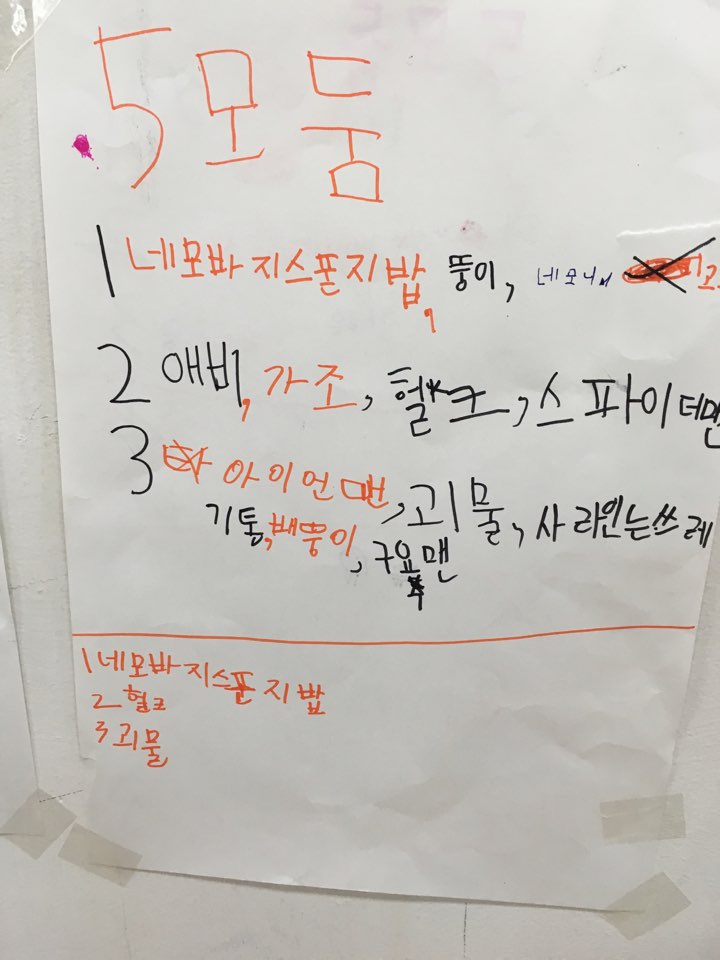 5모둠
1 네모바지스폰지밥, 뚱이, 네모니
2 애비, 가조, 헐크, 스파이더맨
3 아이언맨, 괴물, 사라있는쓰레
기통, 배뚱이, 구요맨
1 네모바지스폰지밥
2 헐크
3 괴물